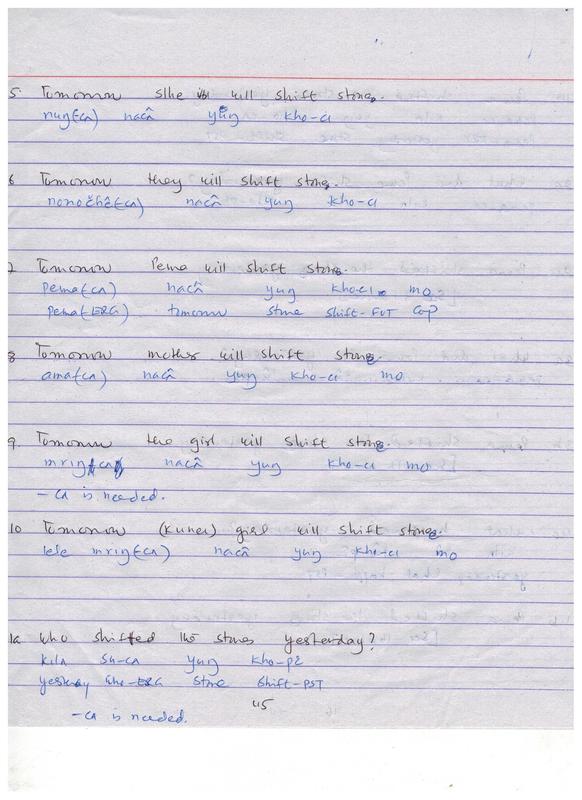 5. Tomorrow s/he will shift stones.
nuŋ(ca) nacâ yuŋ kho-ci
6 Tomorrow they will shift stones.
nonočhê(ca) nacâ yuŋ kho-ci
7 Tomorrow Pema will shift stones.
pema(ca) nacâ yuŋ kho-ci mo
pema(ERG) tomorrow stone shift-FUT COP
8 Tomorrow mother will shift stones.
ama(ca) nacâ yuŋ kho-ci mo
9. Tomorrow the girl will shift stones.
mriŋ ca nacâ yuŋ kho-ci mo
- ca is needed.
10 Tomorrow (Kuner) girl will shift stones.
lese mriŋ(ca) nacâ yuŋ kho-ci mo
1a who shifted the stones yesterday?
kila su-ca yuŋ kho-pɛ
yesterday who-ERG stone shift-PST
45
-ca is needed.